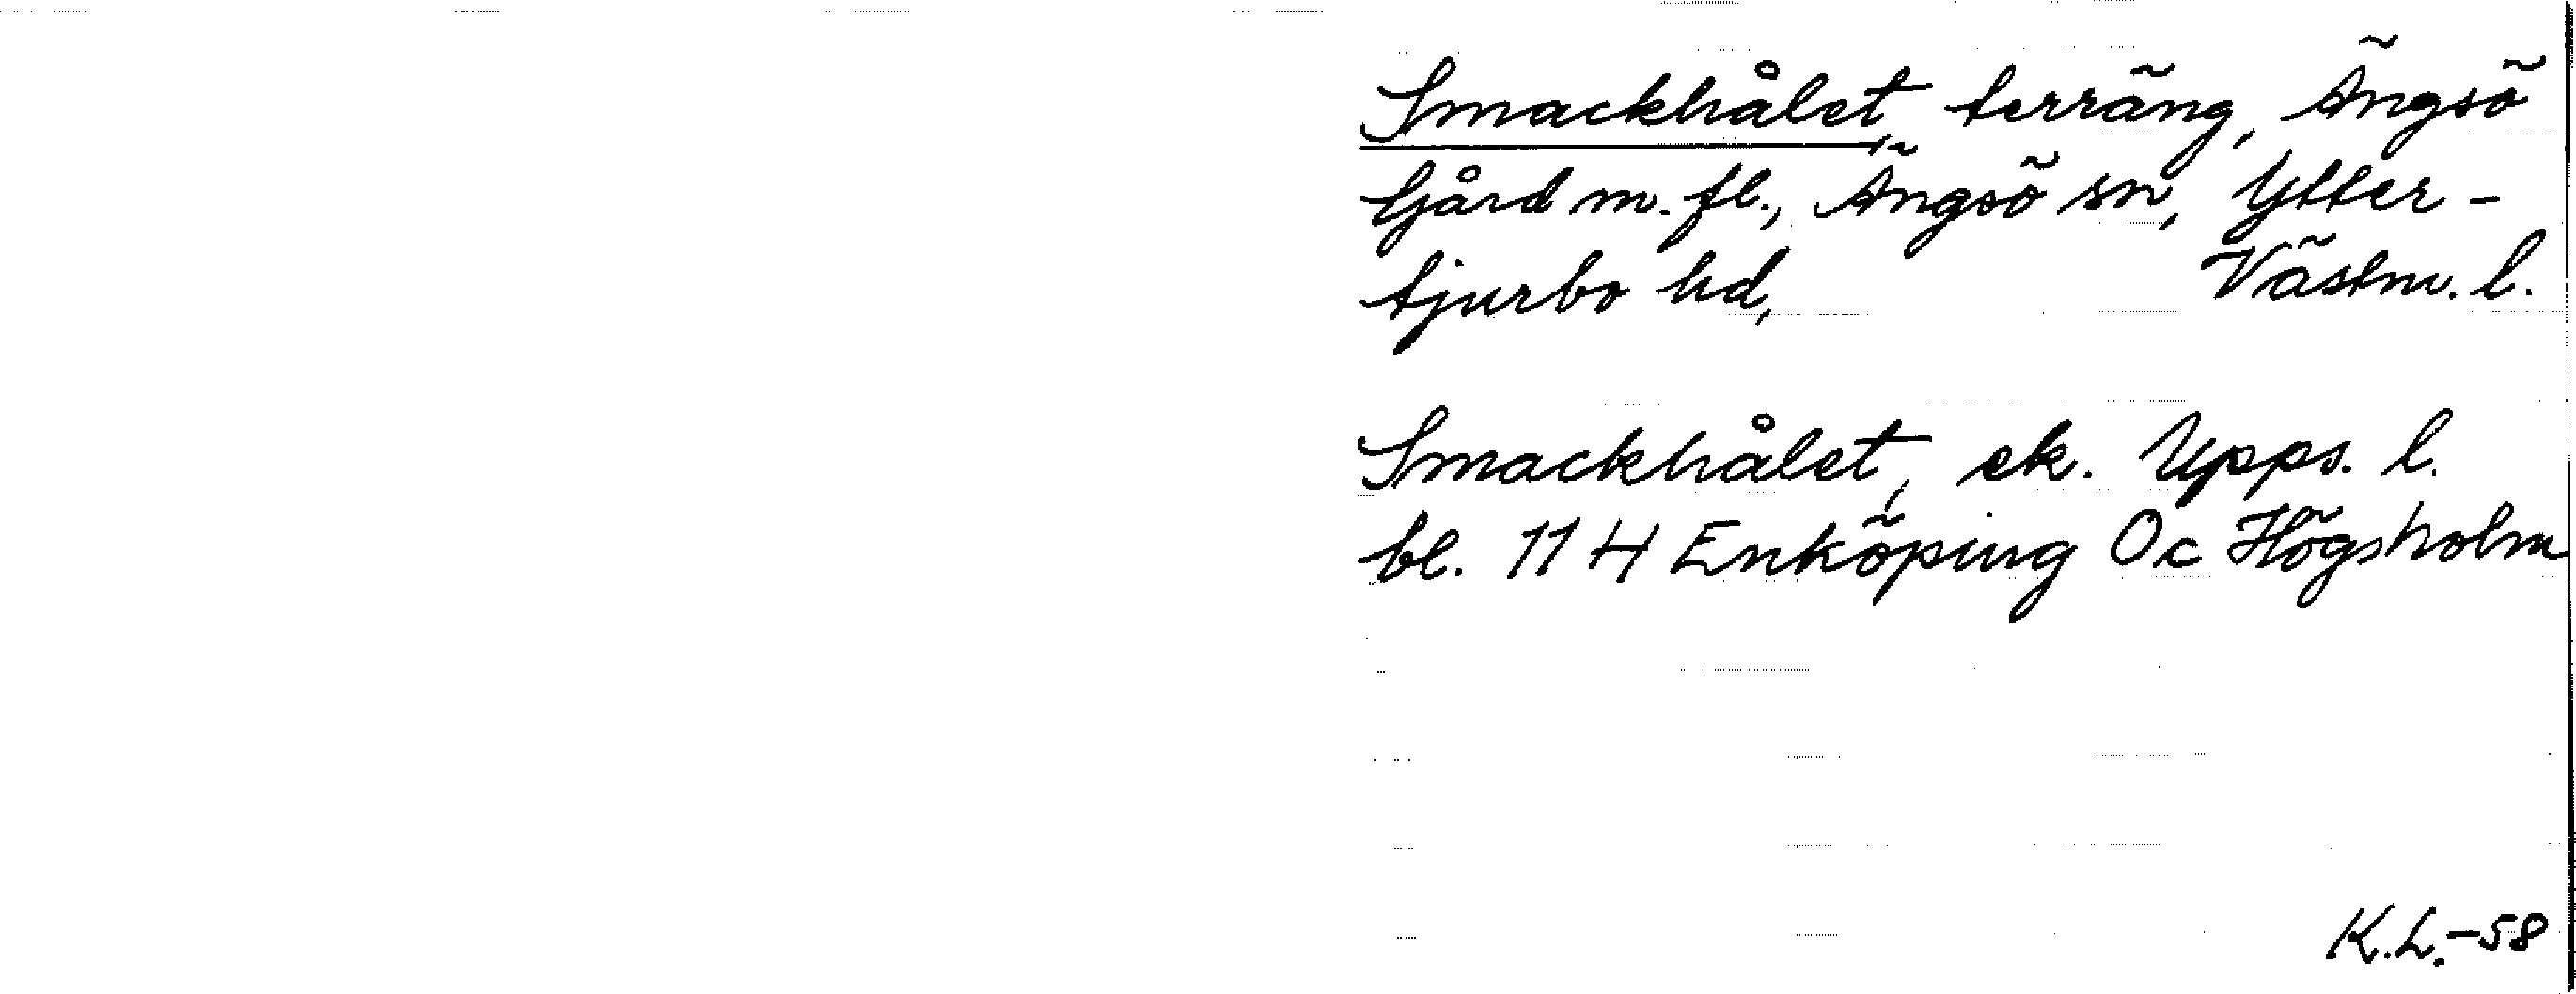 Smackhålet, terräng, Ängsö
Gård m. fl., Ängsö sn, Ytter-
tjurbo hd, Västm. l.
Smackhålet, ek. Upps. l.
bl. 11 H Enköping Oc Högsholm
K.L.-58